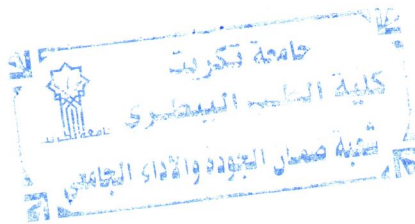 جامعة تكريت
كلية الطب البيطري
شعبة ضمان الجودة والاداء الجامعي